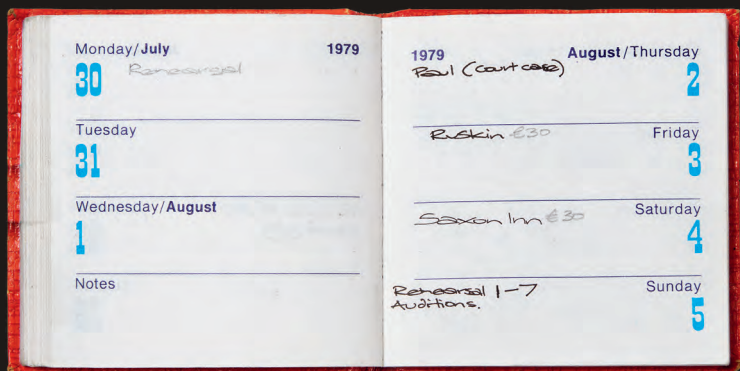 Monday/July 1979
30 Rehearsal
Tuesday
31
Wednesday/August
1
Notes
1979 August/Thursday
Paul (court case)
2
Ruskin £30 Friday
3
Saxon Inn £30 Saturday
4
Rehearsal 1-7 Sunday
Auditions.
5